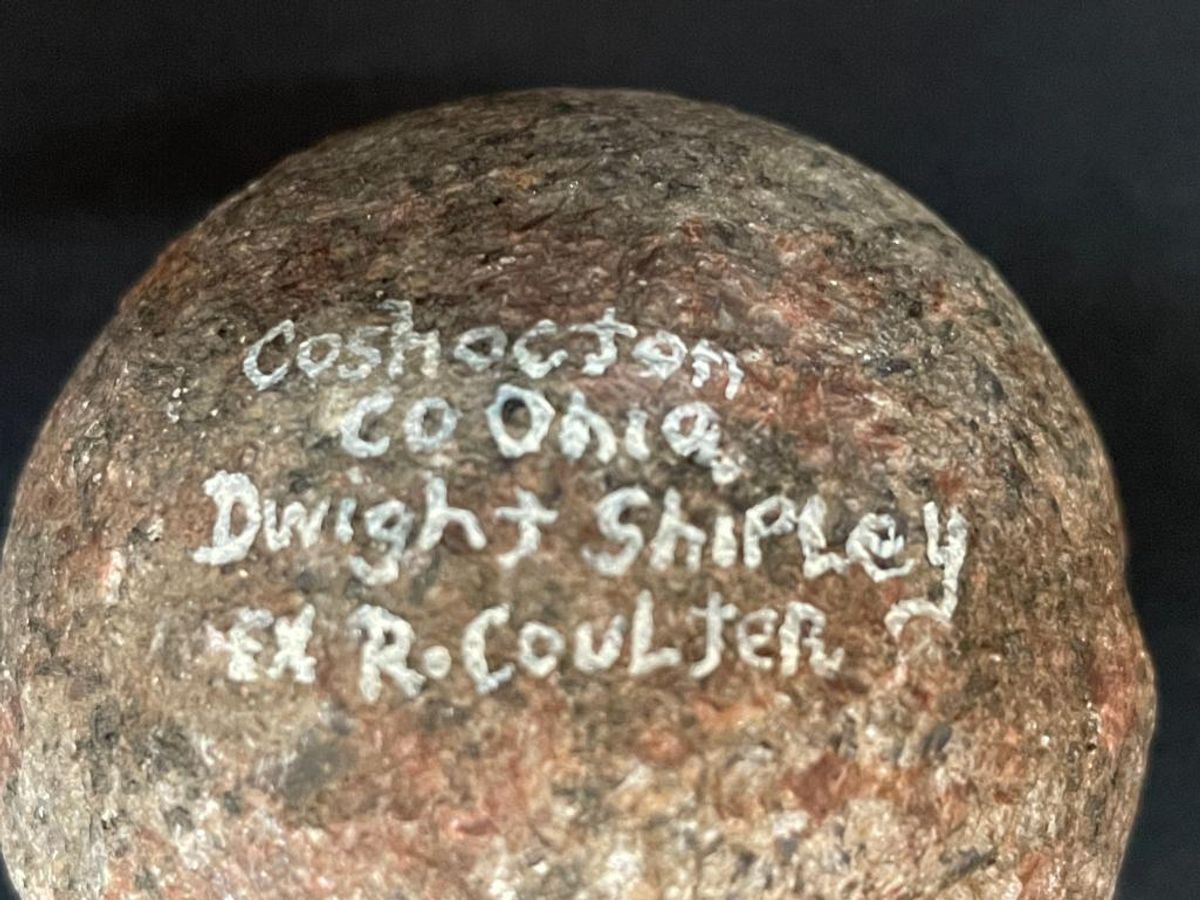 Coshocton
Co Ohio.
Dwight Shipley
Ex R. Coulter